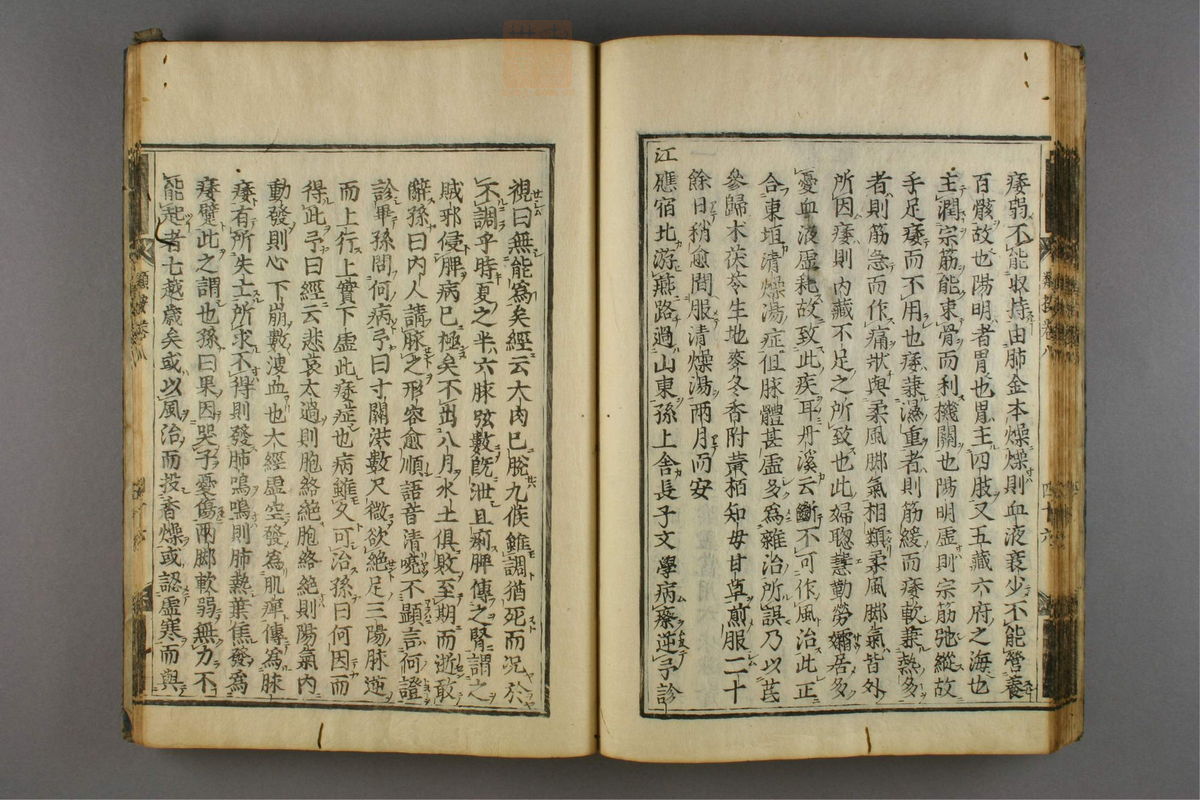 痿弱不能收持由肺金本燥燥則血液衰少不能營養
百骸故也陽明者胃也胃主四肢又五藏六府之海也
主潤宗筋能束骨而利機關也陽明虛則宗筋弛縱故
手足痿而不用也痿兼濕重者則筋緩而痿軟兼熱多
者則筋急而作痛狀與柔風脚氣相類柔風脚氣皆外
所因痿則內藏不足之所致也此婦聰慧勤勞孀居多
憂血液虛耗故致此疾耳丹溪云斷不可作風治此正
合東垣清燥湯症但脉體甚虛多為雜治所誤乃以芪
參歸朮茯苓生地麥冬香附黃栢知毋甘草煎服二十
餘日稍愈間服清燥湯兩月而安
江應宿北游燕路過山東孫上舍長子文學病瘵逆予診
視曰無能為矣經云大肉已脫九候雖調猶死而況於
不調乎時夏之半六脉弦數既泄且痢脾傳之腎謂之
賊邪侵脾病已極矣不出八月水土俱敗至期而逝敢
辭孫曰內人請脉之形容愈順語音清曉不顯言何證
診畢孫問何病予曰寸關洪數尺微欲絕足三陽脉逆
而上行上實下虛此痿症也病雖久可治孫曰何因而
得此予曰經云悲哀太過則胞絡絕胞絡絕則陽氣內
動發則心下崩數溲血也大經虛空發為肌痺傳為脉
痿有所失亡所求不得則發肺鳴鳴則肺熱葉焦發為
痿躄此之謂也孫曰果因哭子憂傷兩脚軟弱無力不
能起者七越歲矣或以風治而投香燥或認虛寒而與